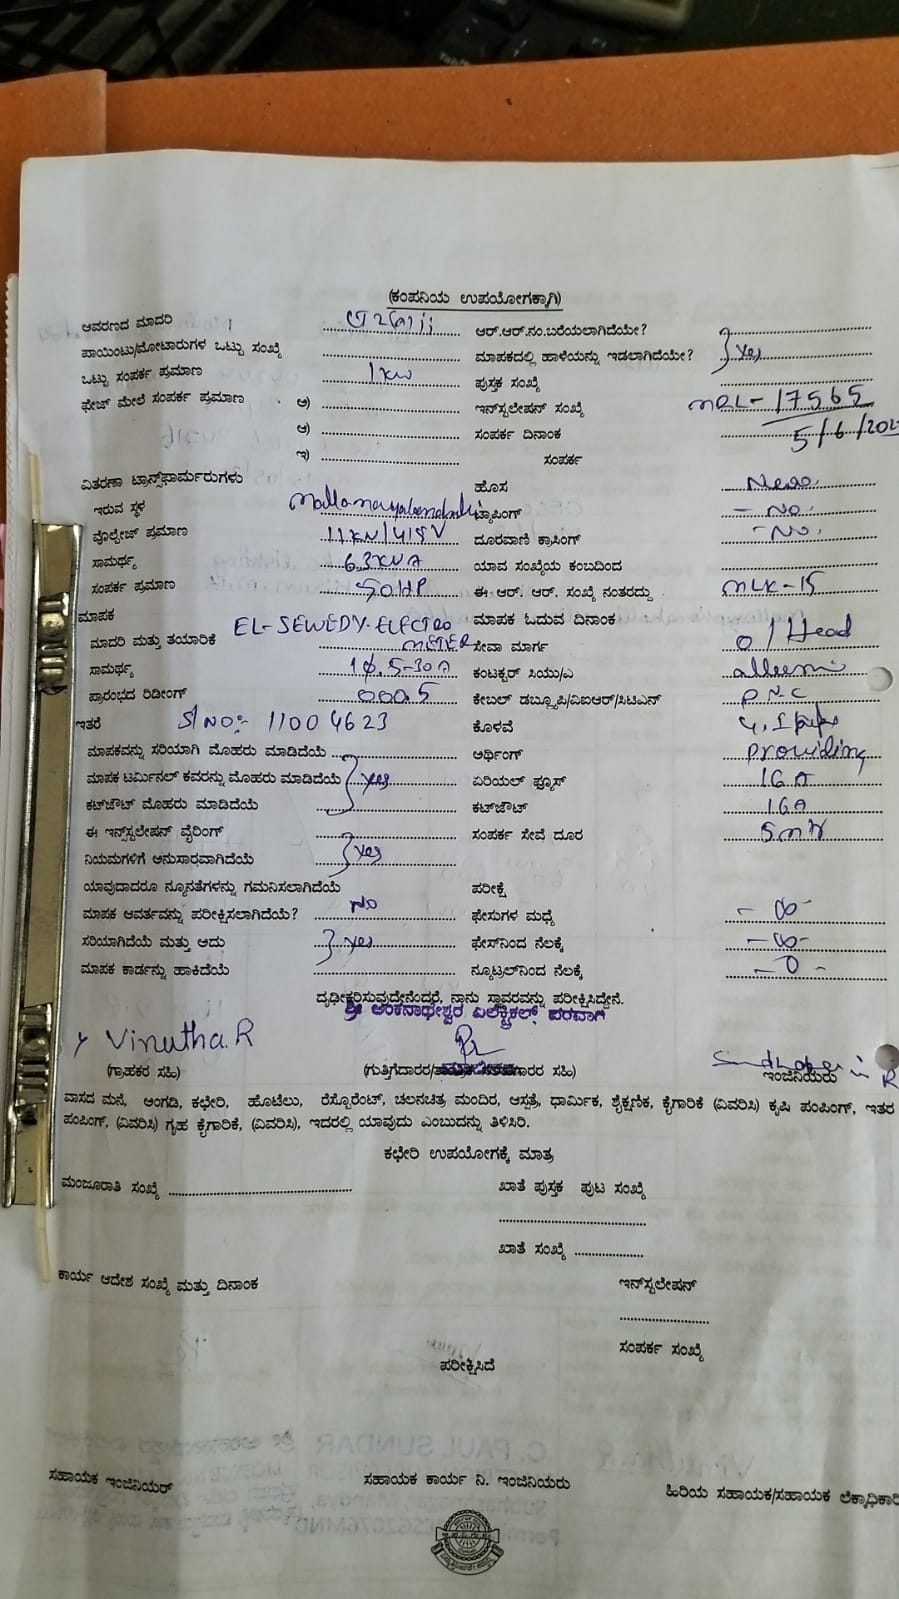 (ಕಂಪನಿಯ ಉಪಯೋಗಕ್ಕಾಗಿ)
ಆವರಣದ ಮಾದರಿ ಆರ್.ಆರ್.ನಂ.ಬರೆಯಲಾಗಿದೆಯೇ?
ಪಾಯಿಂಟು/ಮೋಟಾರುಗಳ ಒಟ್ಟು ಸಂಖ್ಯೆ ಮಾಪಕದಲ್ಲಿ ಹಾಳೆಯನ್ನು ಇಡಲಾಗಿದೆಯೇ? } Yes
ಒಟ್ಟು ಸಂಪರ್ಕ ಪ್ರಮಾಣ 1 KW ಪುಸ್ತಕ ಸಂಖ್ಯೆ
ಫೇಜ್ ಮೇಲೆ ಸಂಪರ್ಕ ಪ್ರಮಾಣ ಅ) ಇನ್‌ಸ್ಟಲೇಷನ್ ಸಂಖ್ಯೆ 17565
ಆ) ಸಂಪರ್ಕ ದಿನಾಂಕ 5/6/202
ಇ) ಸಂಪರ್ಕ
ವಿತರಣಾ ಟ್ರಾನ್ಸ್‌ಫಾರ್ಮರುಗಳು ಹೊಸ New
ಇರುವ ಸ್ಥಳ ಟ್ಯಾಪಿಂಗ್ - NO -
ವೊಲ್ಟೇಜ್ ಪ್ರಮಾಣ 11KV/415V ದೂರವಾಣಿ ಕ್ರಾಸಿಂಗ್ - NO -
ಸಾಮರ್ಥ್ಯ 63KVA ಯಾವ ಸಂಖ್ಯೆಯ ಕಂಬದಿಂದ
ಸಂಪರ್ಕ ಪ್ರಮಾಣ 50HP ಈ ಆರ್. ಆರ್. ಸಂಖ್ಯೆ ನಂತರದ್ದು MLK-15
ಮಾಪಕ ಮಾಪಕ ಓದುವ ದಿನಾಂಕ
ಮಾದರಿ ಮತ್ತು ತಯಾರಿಕೆ EL-SEWEDY-ELECTRO METER ಸೇವಾ ಮಾರ್ಗ O/Head
ಸಾಮರ್ಥ್ಯ 1ϕ, 5-30A ಕಂಟಕ್ಟರ್ ಸಿಯು/ಎ
ಪ್ರಾರಂಭದ ರಿಡೀಂಗ್ 000.5 ಕೇಬಲ್ ಡಬ್ಲ್ಯೂಪಿ/ವಿಐಆರ್/ಸಿಟಿಎಸ್ P.V.C
ಇತರೆ Sl NO:- 11004623 ಕೊಳವೆ
ಮಾಪಕವನ್ನು ಸರಿಯಾಗಿ ಮೊಹರು ಮಾಡಿದೆಯೆ ಅರ್ಥಿಂಗ್ Providing
ಮಾಪಕ ಟರ್ಮಿನಲ್ ಕವರನ್ನು ಮೊಹರು ಮಾಡಿದೆಯೆ } Yes ಏರಿಯಲ್ ಫ್ಯೂಸ್ 16A
ಕಟ್‌ಔಟ್ ಮೊಹರು ಮಾಡಿದೆಯೆ ಕಟ್‌ಔಟ್ 16A
ಈ ಇನ್‌ಸ್ಟಲೇಷನ್ ವೈರಿಂಗ್ ಸಂಪರ್ಕ ಸೇವೆ ದೂರ
ನಿಯಮಗಳಿಗೆ ಅನುಸಾರವಾಗಿದೆಯೆ } Yes
ಯಾವುದಾದರೂ ನ್ಯೂನತೆಗಳನ್ನು ಗಮನಿಸಲಾಗಿದೆಯೆ ಪರೀಕ್ಷೆ
ಮಾಪಕ ಆವರ್ತವನ್ನು ಪರೀಕ್ಷಿಸಲಾಗಿದೆಯೆ? NO ಫೇಸುಗಳ ಮಧ್ಯೆ - ∞ -
ಸರಿಯಾಗಿದೆಯೆ ಮತ್ತು ಅದು } Yes ಫೇಸ್‌ನಿಂದ ನೆಲಕ್ಕೆ - ∞ -
ಮಾಪಕ ಕಾರ್ಡನ್ನು ಹಾಕಿದೆಯೆ ನ್ಯೂಟ್ರಲ್‌ನಿಂದ ನೆಲಕ್ಕೆ - 0 -
ದೃಢೀಕರಿಸುವುದೇನೆಂದರೆ, ನಾನು ಸ್ಥಾವರವನ್ನು ಪರೀಕ್ಷಿಸಿದ್ದೇನೆ.
ಶ್ರೀ ಅಂಕನಾಥೇಶ್ವರ ಎಲೆಕ್ಟ್ರಿಕಲ್ಸ್ ಪರವಾಗಿ
Vinutha.R
(ಗ್ರಾಹಕರ ಸಹಿ) ಇಂಜಿನಿಯರು
ವಾಸದ ಮನೆ, ಅಂಗಡಿ, ಕಛೇರಿ, ಹೊಟೆಲು, ರೆಸ್ಟೊರೆಂಟ್, ಚಲನಚಿತ್ರ ಮಂದಿರ, ಆಸ್ಪತ್ರೆ, ಧಾರ್ಮಿಕ, ಶೈಕ್ಷಣಿಕ, ಕೈಗಾರಿಕೆ (ವಿವರಿಸಿ) ಕೃಷಿ ಪಂಪಿಂಗ್, ಇತರ
ಪಂಪಿಂಗ್, (ವಿವರಿಸಿ) ಗೃಹ ಕೈಗಾರಿಕೆ, (ವಿವರಿಸಿ), ಇದರಲ್ಲಿ ಯಾವುದು ಎಂಬುದನ್ನು ತಿಳಿಸಿರಿ.
ಕಛೇರಿ ಉಪಯೋಗಕ್ಕೆ ಮಾತ್ರ
ಮಂಜೂರಾತಿ ಸಂಖ್ಯೆ ಖಾತೆ ಪುಸ್ತಕ ಪುಟ ಸಂಖ್ಯೆ
ಖಾತೆ ಸಂಖ್ಯೆ
ಕಾರ್ಯ ಆದೇಶ ಸಂಖ್ಯೆ ಮತ್ತು ದಿನಾಂಕ ಇನ್‌ಸ್ಟಲೇಷನ್
ಸಂಪರ್ಕ ಸಂಖ್ಯೆ
ಪರೀಕ್ಷಿಸಿದೆ
ಸಹಾಯಕ ಇಂಜಿನಿಯರ್ ಸಹಾಯಕ ಕಾರ್ಯ ನಿ. ಇಂಜಿನಿಯರು ಹಿರಿಯ ಸಹಾಯಕ/ಸಹಾಯಕ ಲೆಕ್ಕಾಧಿಕಾರಿ